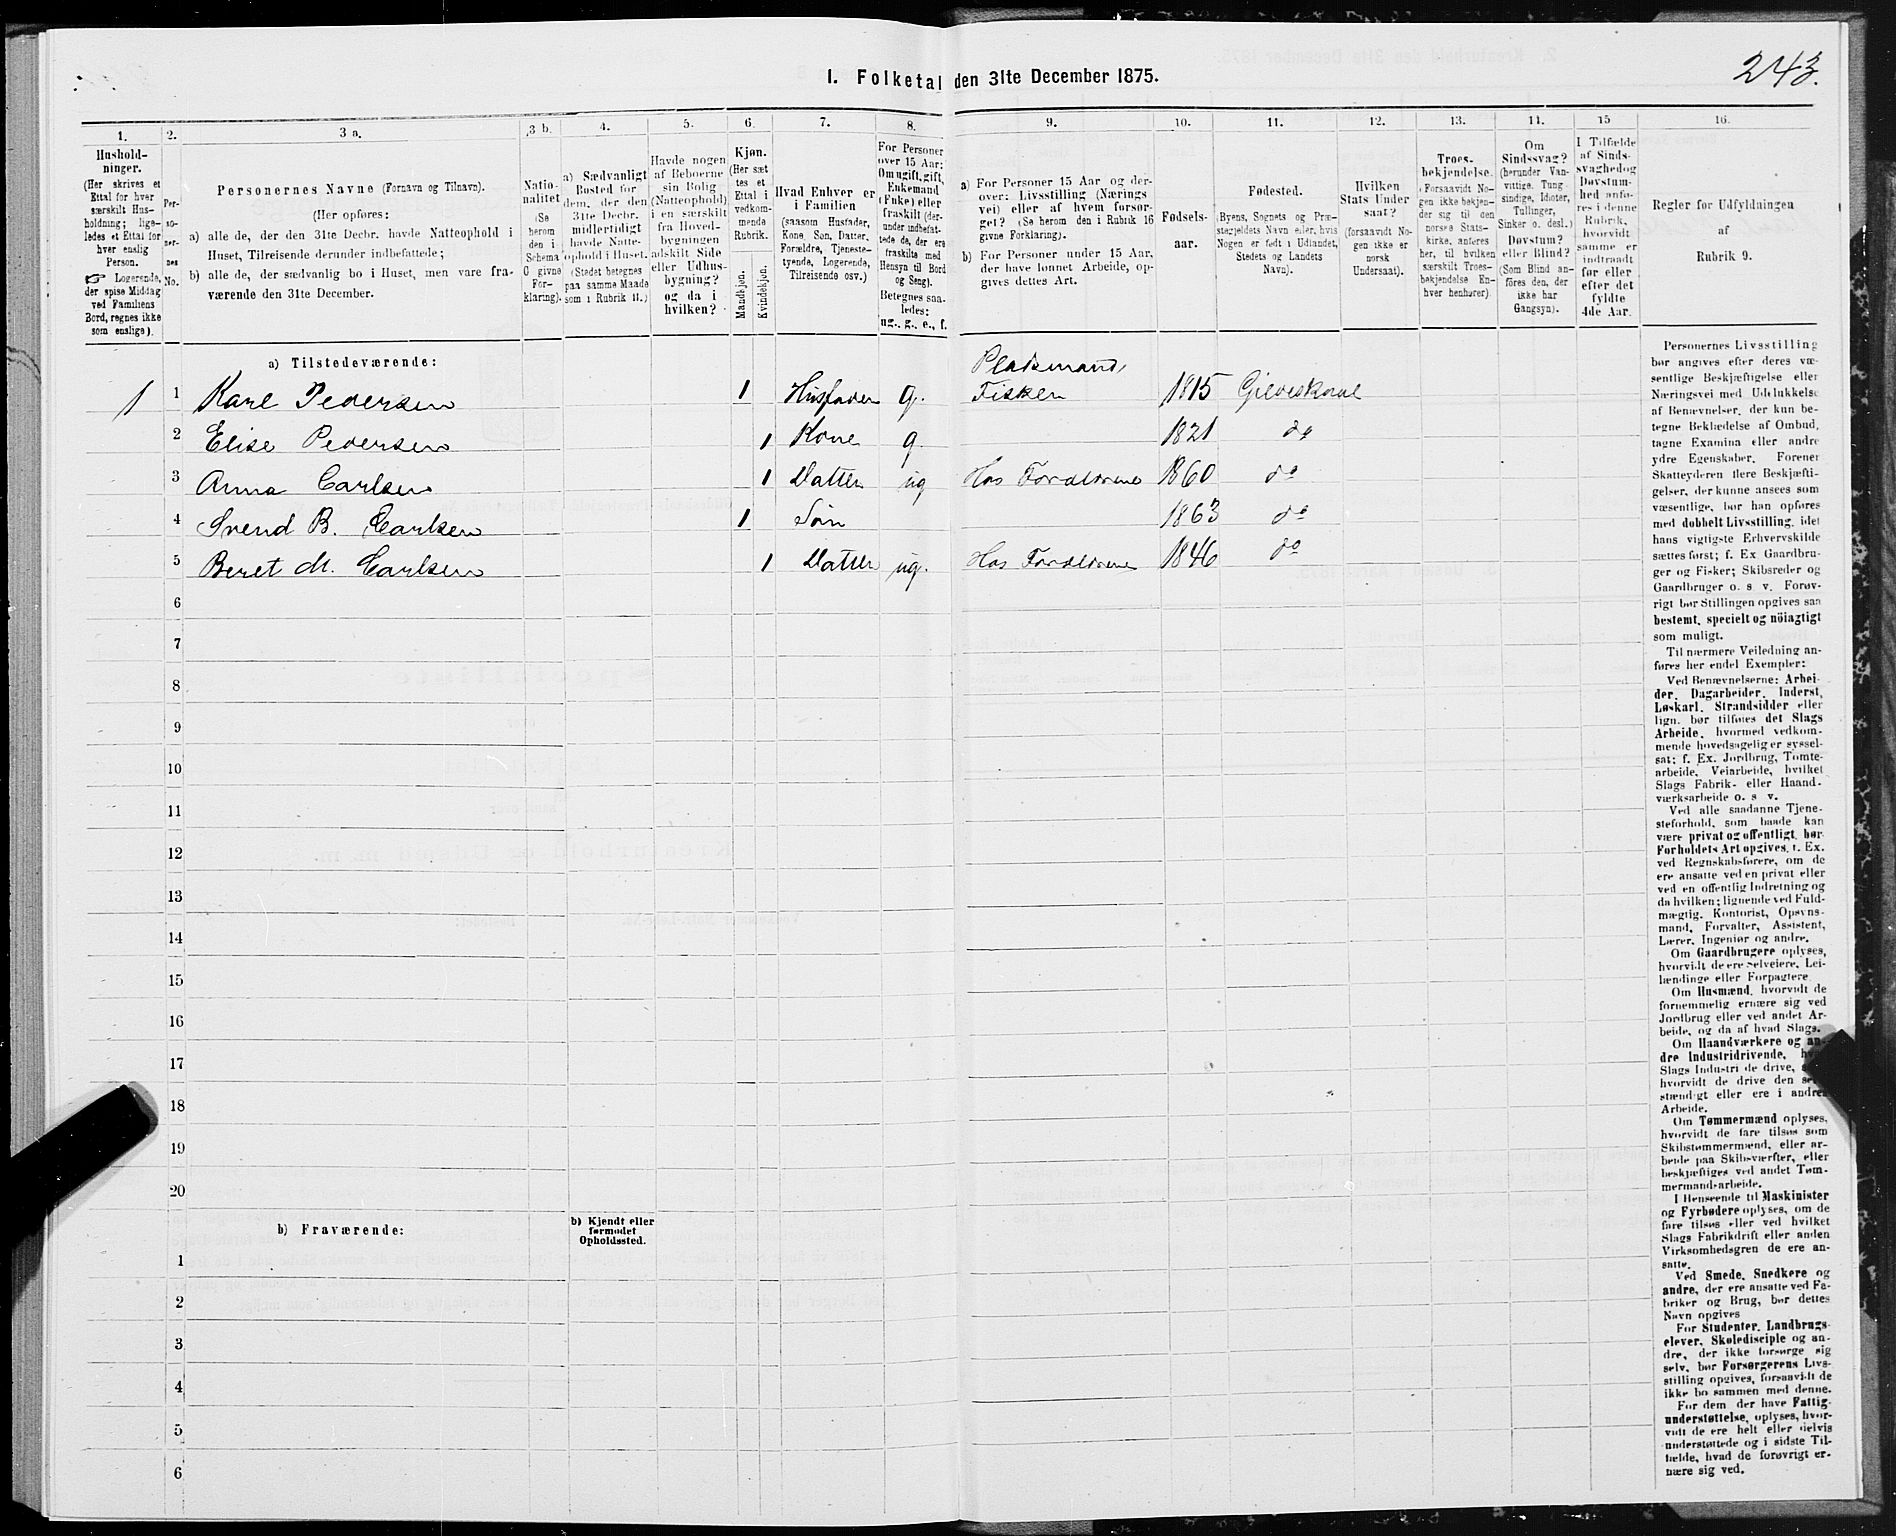 1. Folketal den 31te December 1875.
243.
1.
2.
3 a.
3 b.
4.
5.
6.
7.
8.
9.
10.
11.
12.
13.
14.
15
16.
Hushold-
ninger.
(Her skrives et
Ettal for hver
særskilt Hus-
holdning; lige-
ledes et Ettal for
hver enslig
Person.
☞ Logerende,
der spise Middag
ved Familiens
Bord, regnes ikke
som enslige).
Per-
so-
ner-
nes
No.
Personernes Navne (Fornavn og Tilnavn).
(Her opføres:
a) alle de, der den 31te Decbr. havde Natteophold i
Huset, Tilreisende derunder indbefattede;
b) alle de, der sædvanlig bo i Huset, men vare fra-
værende den 31te December.
Natio-
nalitet
(Se
herom
den i
Schema
C givne
For-
klaring).
a) Sædvanligt
Bosted for
dem, der den
31te Decbr.
midlertidigt
havde Natte-
ophold i Huset.
(Stedet betegnes
paa samme Maade
som i Rubrik 11.)
Havde nogen
af Beboerne
sin Bolig
(Natteophold)
i en særskilt
fra Hoved-
bygningen
adskilt Side
eller Udhus-
bygning?
og da i
hvilken?
Kjøn.
(Her sæt
tes et
Ettal i
vedkom-
mende
Rubrik.
Mandkjøn.
Kvindekjøn.
Hvad Enhver er
i Familien
(saasom Husfader,
Kone, Søn, Datter,
Forældre, Tjeneste-
tyende, Logerende,
Tilreisende osv.)
For Personer
over 15 Aar:
Om ugift, gift,
Enkemand
(Enke) eller
fraskilt (der-
under indbefat-
tede de, der ere
fraskilte med
Hensyn til Bord
og Seng).
Betegnes saa-
ledes:
ug., g., e., f.
a) For Personer 15 Aar og der-
over: Livsstilling (Nærings
vei) eller af hvem forsør-
get? (Se herom den i Rubrik 16
givne Forklaring).
b) For Personer under 15 Aar,
der have lønnet Arbeide, op-
gives dettes Art.
Fødsels-
aar.
Fødested.
(Byens, Sognets og Præ-
stegjeldets Navn eller, hvis
Nogen er født i Udlandet,
Stedets og Landets
Navn).
Hvilken
Stats Under
saat?
(forsaavidt No-
gen ikke er
norsk
Undersaat).
Troes-
bekjendelse.
(Forsaavidt No-
gen ikke bekjen-
der sig til den
norske Stats-
kirke, anføres
her, til hvilken
særskilt Troes-
bekjendelse En-
hver henhører).
Om
Sindssvag?
(herunder Van-
vittige, Tung
sindige, Idioter,
Tullinger,
Sinker o. desl.)
Døvstum?
eller Blind?
(Som Blind an-
føres den, der
ikke har
Gangsyn).
I Tilfælde
af Sinds-
svaghed og
Døvstum-
hed anfø-
res i denne
Rubrik,
hvorvidt
samme er
indtraadt
før eller
efter det
fyldte
4de Aar.
Regler for Udfyldningen
af
Rubrik 9.
a) Tilstedeværende:
Pladsmand,
1 1 Karl Pedersen 1 Husfader g. Fisker 1815 Gildeskaal
2 Elise Pedersen 1 Kone g. 1821 do
3 Anna Carlsen 1 Datter ug Hos Forældrene 1860 do
4 Svend B. Carlsen 1 Søn 1863 do
5 Beret M. Carlsen 1 Datter ug. Hos Forældrene 1846 do
6
7
8
9
10
11
12
13
14
15
16
17
18
19
20
b) Fraværende:
b) Kjendt eller
formodet
Opholdssted.
1
2
3
4
5
6
Personernes Livsstilling
bør angives efter deres væ-
sentlige Beskjæftigelse eller
Næringsvei med Udelukkelse
af Benævnelser, der kun be-
tegne Beklædelse af Ombud,
tagne Examina eller andre
ydre Egenskaber. Forener
Skatteyderen flere Beskjæfti-
gelser, der kunne ansees som
væsentlige, bør han opføres
med dobbelt Livsstilling, idet
hans vigtigste Erhvervskilde
sættes først; f. Ex Gaardbru-
ger og Fisker; Skibsreder og
Gaardbruger o. s. v. Forøv-
rigt bør Stillingen opgives saa
bestemt, specielt og nöiagtigt
som muligt.
Til nærmere Veiledning an-
føres her endel Exempler:
Ved Benævnelserne: Arbei-
der, Dagarbeider, Inderst,
Løskarl, Strandsidder eller
lign. bør tilføies det Slags
Arbeide, hvormed vedkom-
mende hovedsagelig er syssel-
sat; f. Ex. Jordbrug, Tomte-
arbeide, Veiarbeide, hvilket
Slags Fabrik- eller Haand-
værksarbeide o. s v.
Ved alle saadanne Tjene-
steforhold, som baade kan
være privat og offentligt, bør
Forholdets Art opgives, f. Ex.
ved Regnskabsførere, om de
ere ansatte ved en privat eller
ved en offentlig Indretning og
da hvilken; lignende ved Fuld-
mægtig, Kontorist, Opsyns-
mand, Forvalter, Assistent,
Lærer, Ingeniør og andre.
Om Gaardbrugere oplyses,
hvorvidt de ere Selveiere, Lei-
lændinge eller Forpagtere
Om Husmænd, hvorvidt de
fornemmelig ernære sig ved
Jordbrug eller ved andet Ar-
beide, og da af hvad Slags.
Om Haandværkere og an-
dre Industridrivende,
Slags Industri de drive,
hvorvidt de drive den
stændigt eller ere i andres
Arbeide.
Om Tømmermænd oplyses,
hvorvidt de fare tilsøs som
Skibstømmermænd, eller ar-
beide paa Skibsværfter, eller
beskjæftiges ved andet Tøm-
mermandsarbeide.
I Henseende til Maskinister
og Fyrbødere oplyses, om de
fare tilsøs eller ved hvilket
Slags Fabrikdrift eller anden
Virksomhedsgren de ere an-
satte.
Ved Smede, Snedkere og
andre, der ere ansatte ved Fa-
briker og Brug, bør dettes
Navn opgives
For Studenter, Landbrugs-
elever, Skoledisciple og an-
dre, der ikke forsørge sig
selv, bør Forsørgerens Livs-
stilling opgives, forsaavidt de
ikke bo sammen med denne.
For dem der have Fattig-
understøttelse, oplyses, hvor-
vidt de ere helt eller delvis
understøttede og i sidste Til-
fælde, hvad de forøvrigt er-
nære sig ved.